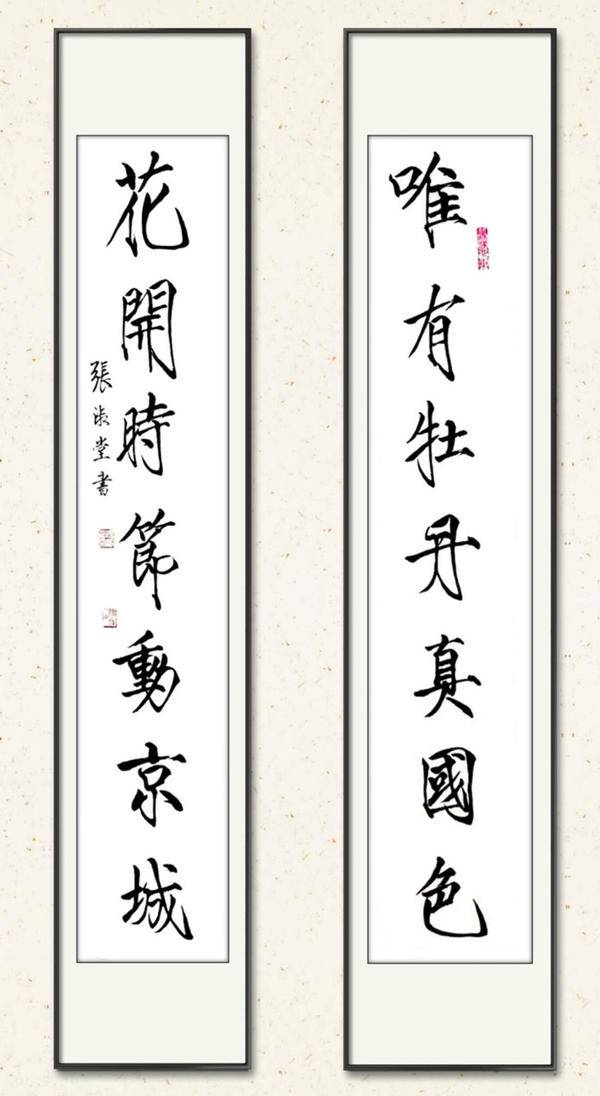 唯有牡丹真國色
花開時節動京城
張淑堂書